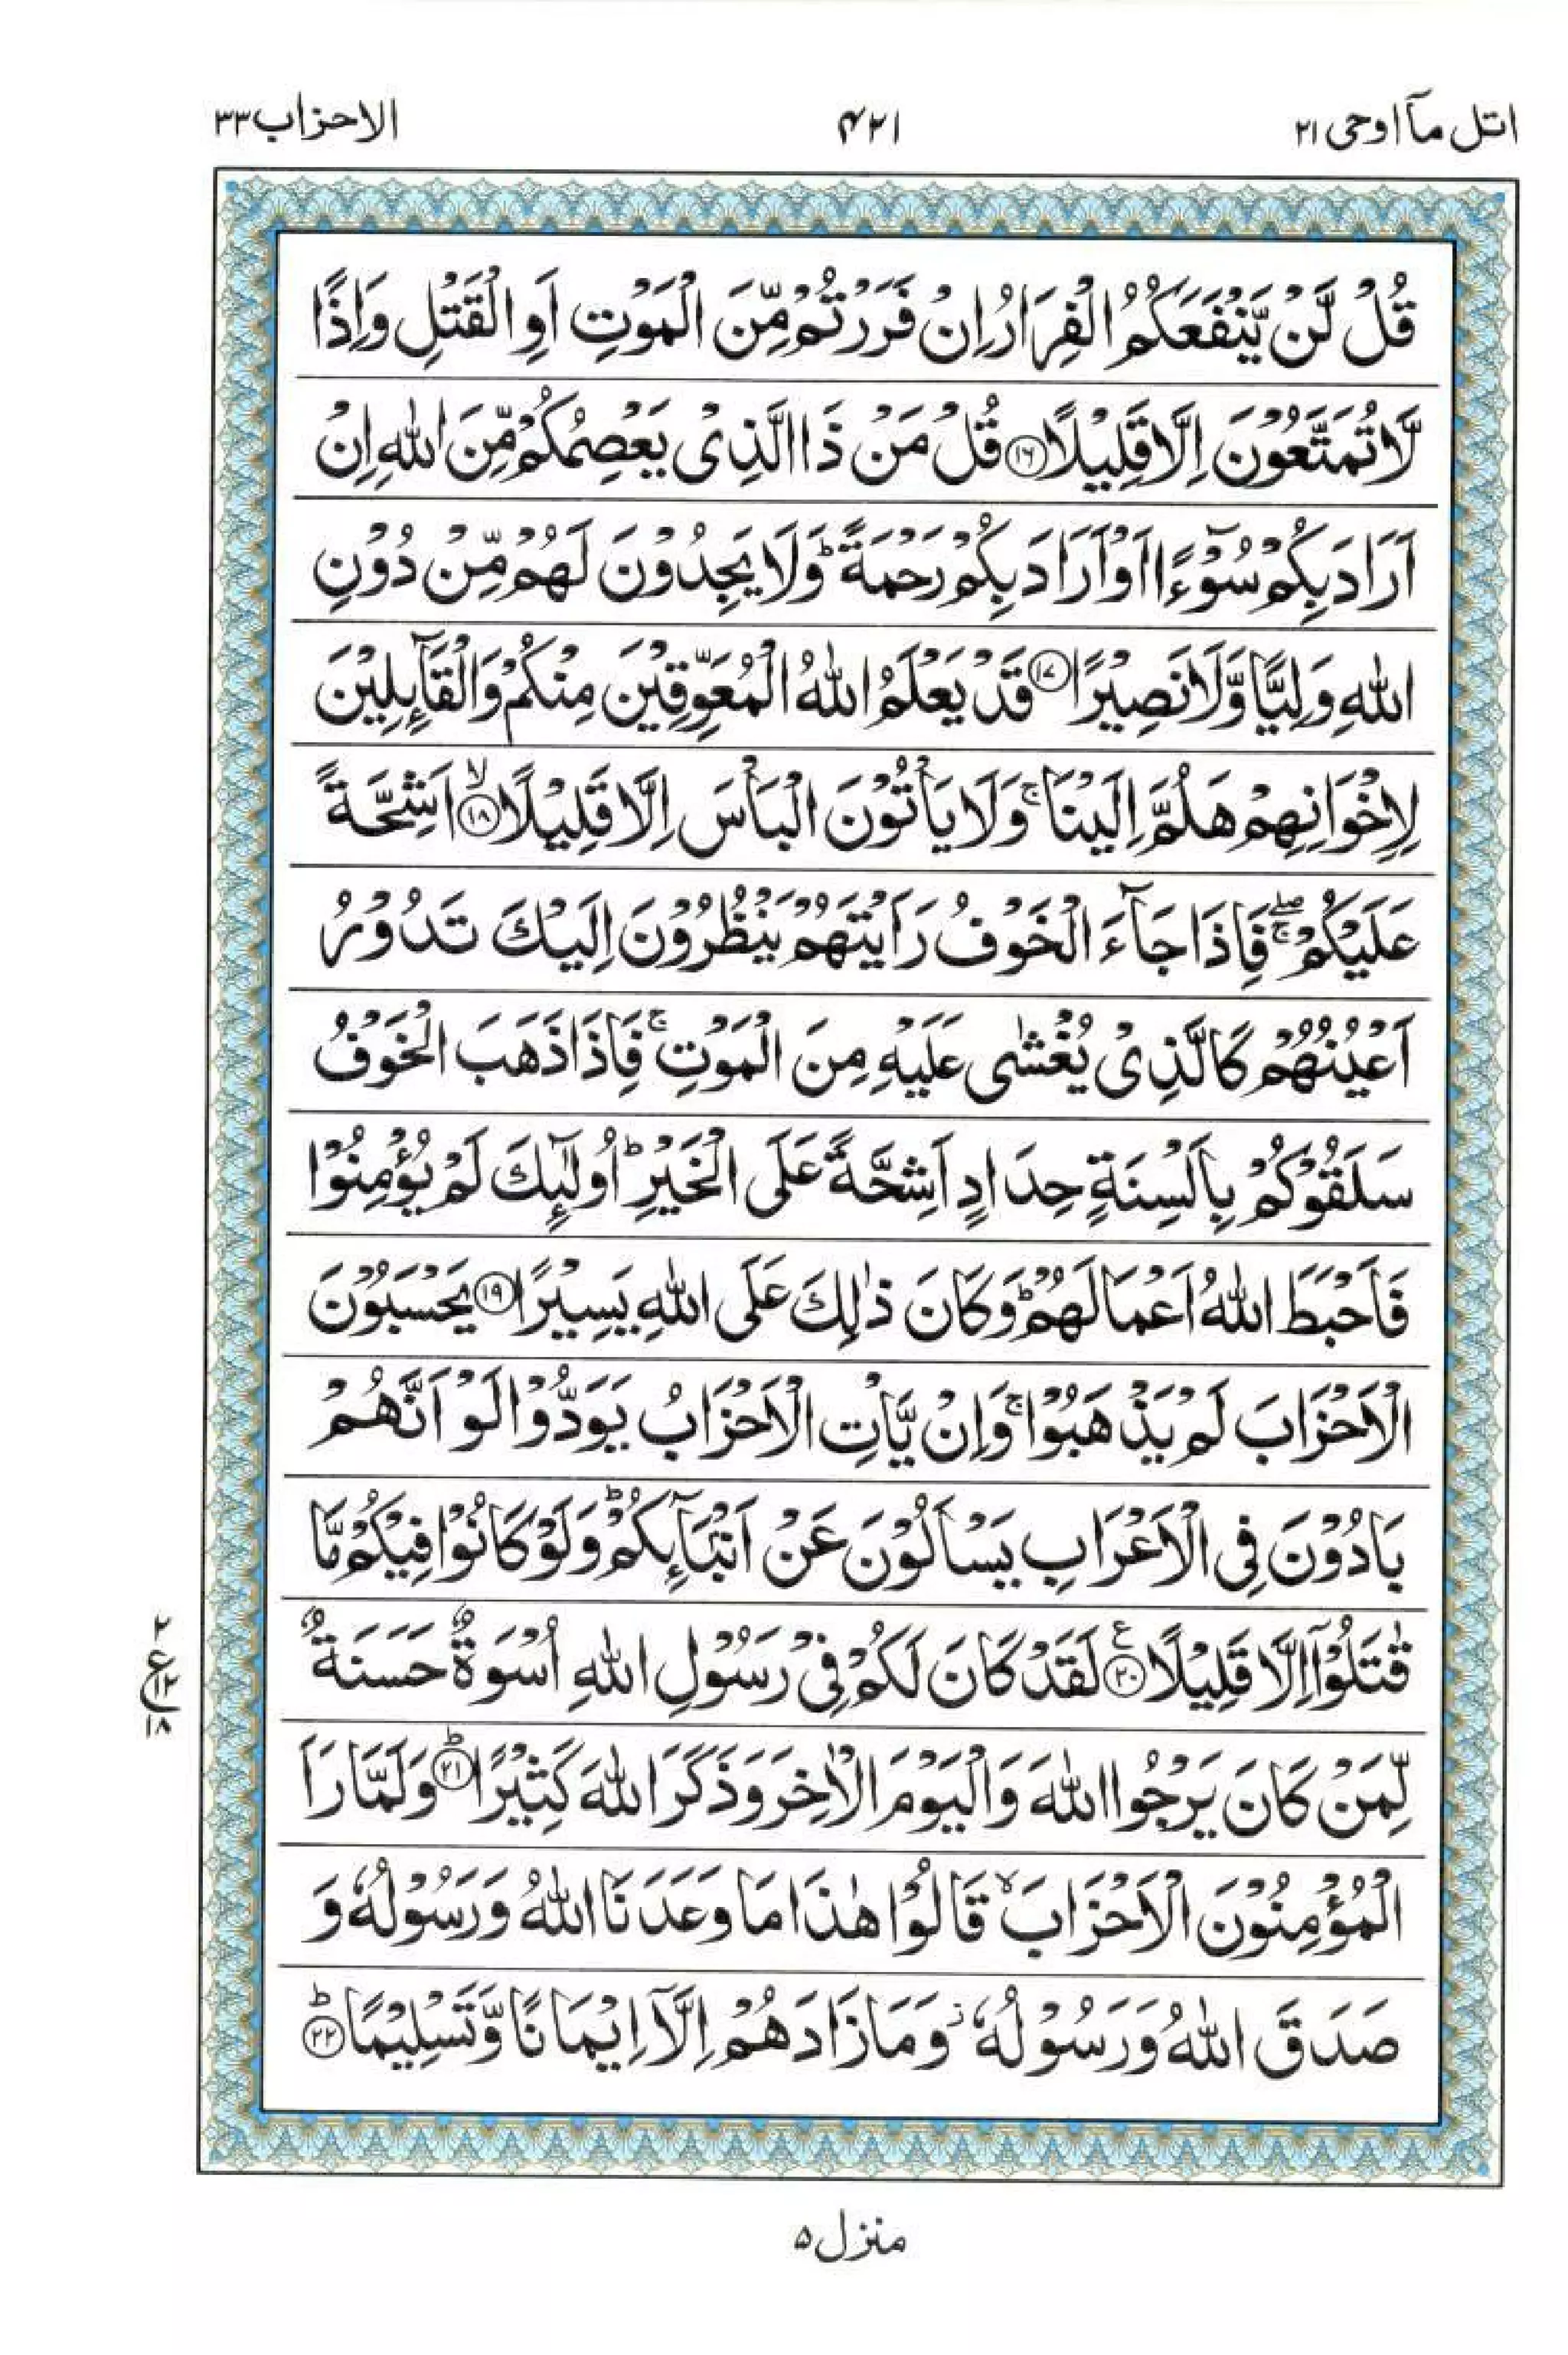 اتل مآ اوحی ۲۱
۴۲۱
الاحزاب ۳۳
قُلْ لَّنْ يَّنْفَعَكُمُ الْفِرَارُ اِنْ فَرَرْتُمْ مِّنَ الْمَوْتِ اَوِ الْقَتْلِ وَاِذًا
لَّا تُمَتَّعُوْنَ اِلَّا قَلِيْلًا ﴿۱۶﴾ قُلْ مَنْ ذَا الَّذِىْ يَعْصِمُكُمْ مِّنَ اللّٰهِ اِنْ
اَرَادَ بِكُمْ سُوْٓءًا اَوْ اَرَادَ بِكُمْ رَحْمَةً ؕ وَلَا يَجِدُوْنَ لَهُمْ مِّنْ دُوْنِ
اللّٰهِ وَلِيًّا وَّلَا نَصِيْرًا ﴿۱۷﴾ قَدْ يَعْلَمُ اللّٰهُ الْمُعَوِّقِيْنَ مِنْكُمْ وَالْقَآئِلِيْنَ
لِاِخْوَانِهِمْ هَلُمَّ اِلَيْنَا ۚ وَلَا يَاْتُوْنَ الْبَاْسَ اِلَّا قَلِيْلًا ۙ﴿۱۸﴾ اَشِحَّةً
عَلَيْكُمْ ۖۚ فَاِذَا جَآءَ الْخَوْفُ رَاَيْتَهُمْ يَنْظُرُوْنَ اِلَيْكَ تَدُوْرُ
اَعْيُنُهُمْ كَالَّذِىْ يُغْشٰى عَلَيْهِ مِنَ الْمَوْتِ ۚ فَاِذَا ذَهَبَ الْخَوْفُ
سَلَقُوْكُمْ بِاَلْسِنَةٍ حِدَادٍ اَشِحَّةً عَلَى الْخَيْرِ ؕ اُولٰٓئِكَ لَمْ يُؤْمِنُوْا
فَاَحْبَطَ اللّٰهُ اَعْمَالَهُمْ ؕ وَكَانَ ذٰلِكَ عَلَى اللّٰهِ يَسِيْرًا ﴿۱۹﴾ يَحْسَبُوْنَ
الْاَحْزَابَ لَمْ يَذْهَبُوْا ۚ وَاِنْ يَّاْتِ الْاَحْزَابُ يَوَدُّوْا لَوْ اَنَّهُمْ
بَادُوْنَ فِى الْاَعْرَابِ يَسْاَلُوْنَ عَنْ اَنْۢبَآئِكُمْ ؕ وَلَوْ كَانُوْا فِيْكُمْ مَّا
قٰتَلُوْۤا اِلَّا قَلِيْلًا ﴿۲۰﴾ ع لَقَدْ كَانَ لَكُمْ فِىْ رَسُوْلِ اللّٰهِ اُسْوَةٌ حَسَنَةٌ
۲
ع ۱۲
۱۸
لِّمَنْ كَانَ يَرْجُوا اللّٰهَ وَالْيَوْمَ الْاٰخِرَ وَذَكَرَ اللّٰهَ كَثِيْرًا ؕ﴿۲۱﴾ وَلَمَّا رَاَ
الْمُؤْمِنُوْنَ الْاَحْزَابَ ۙ قَالُوْا هٰذَا مَا وَعَدَنَا اللّٰهُ وَرَسُوْلُهٗ وَ
صَدَقَ اللّٰهُ وَرَسُوْلُهٗ ؗ وَمَا زَادَهُمْ اِلَّاۤ اِيْمَانًا وَّتَسْلِيْمًا ؕ﴿۲۲﴾
منزل ۵